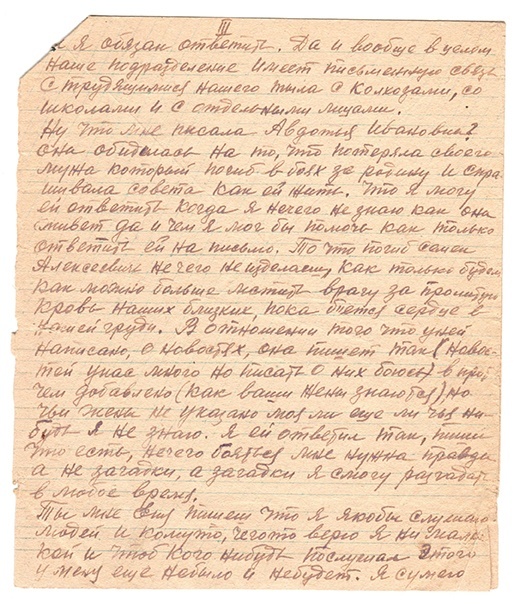 III
и я обязан ответить. Да и вообще в целом
наше подразделение имеет письменную связь
с трудящимися нашего тыла с колхозами, со
школами и с отдельными лицами.
Ну что мне писала Авдотья Ивановна?
она обиделась на то, что потеряла своего
мужа который погиб в боях за родину и спра
шивала совета как ей жить. Что я могу
ей ответить когда я нечего не знаю как она
живет да и чем я мог бы помочь как только
ответить ей на письмо. То что погиб Семен
Алексеевич не чего не изделаеш, как только будем
как можно больше мстить врагу за пролитую
кровь наших близких, пока бьется сердце в
нашей груди. В отношении того что у ней
написано, о новостях, она пишет так (Новос-
тей у нас много но писать о них боюсь) в при
чем добавлено (как ваши жены знаются), но
чьи жены не указано моя ли еще ли чья ни-
будь я не знаю. Я ей ответил так, пиши
что есть, нечего бояться мне нужна правда
а не загадки, а загадки я смогу разгадать
в любое время.
Ты мне пишеш что я якобы слушаю
людей и комуто, чегото верю я ни маль
кой и чтоб кого нибудь послушал этого
у меня еще небыло и небудет. Я сумею